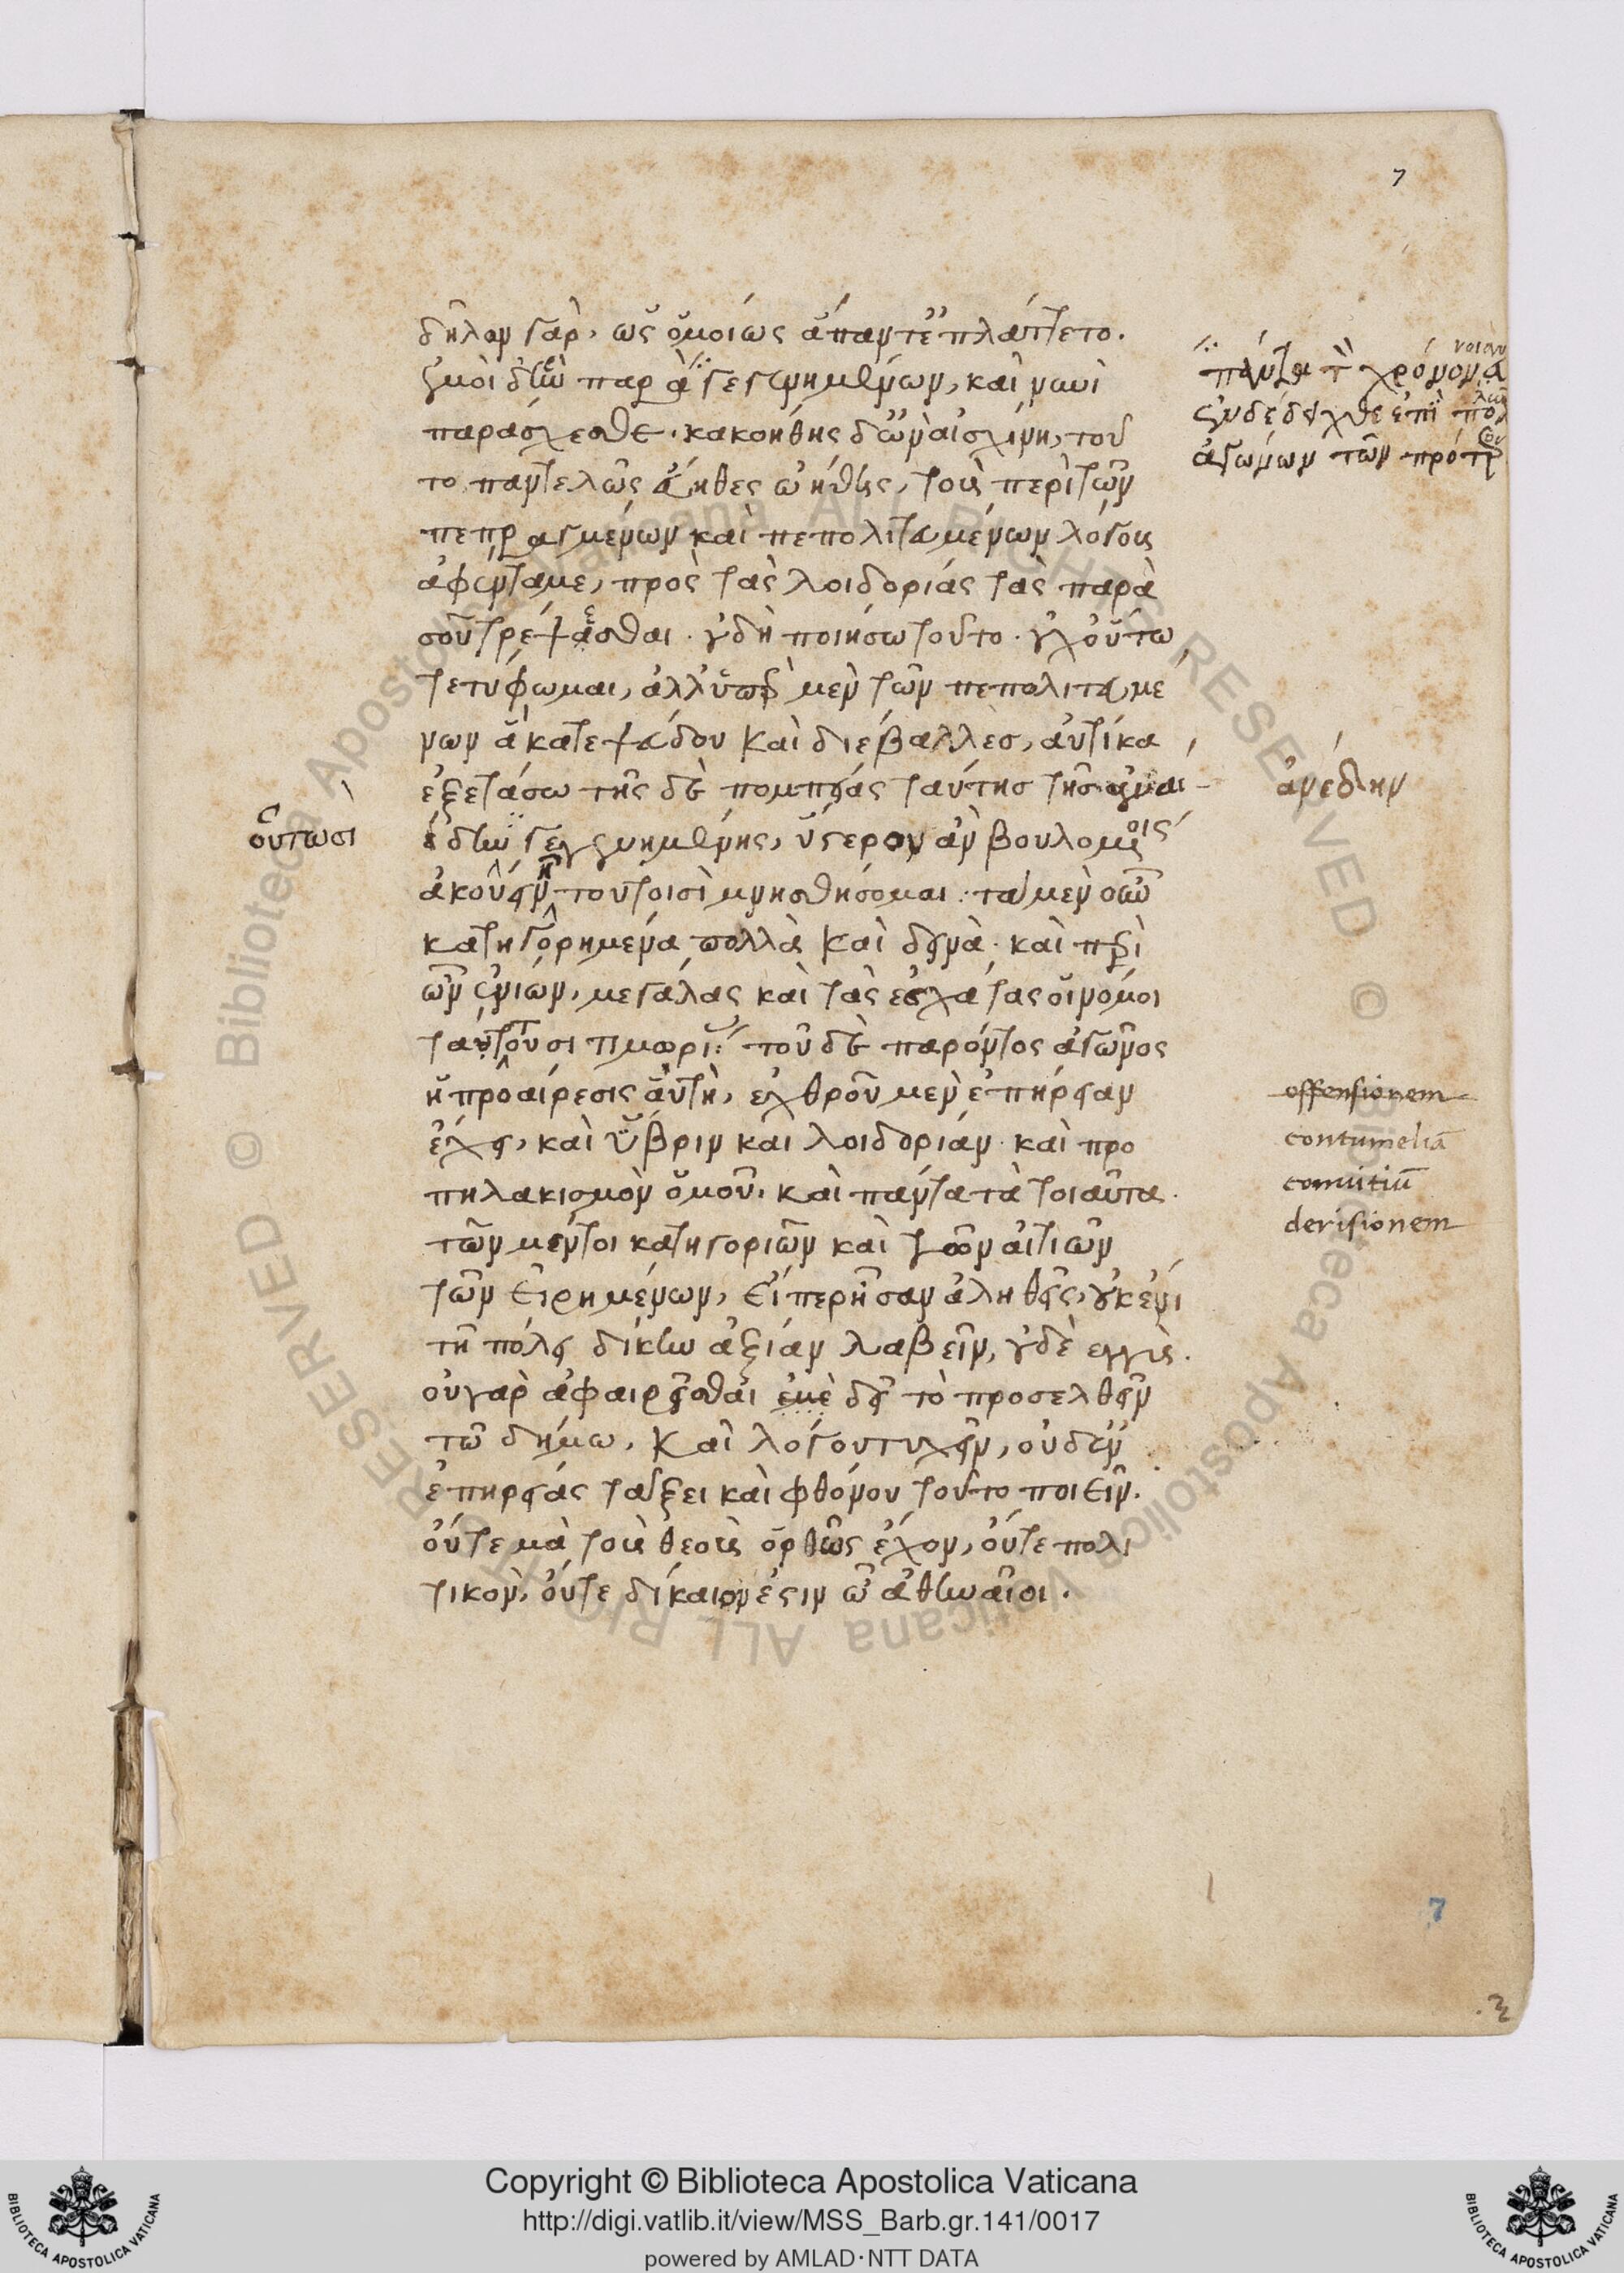 7
δῆλον γὰρ, ὡς ὁμοίως ἅπαντ' ἐπλάττετο.
ἐμοὶ δ' ἣν παρὰ γεγενημένων, καὶ νυνὶ
παράσχεσθε. κακοήθης δ' ὢν αἰσχίνη, τοῦ
το παντελῶς εὔηθες ᾠήθης, τοὺς περὶ τῶν
πεπραγμένων καὶ πεπολιτευμένων λόγους
ἀφέντα με, πρὸς τὰς λοιδορίας τὰς παρὰ
σοῦ τρέψεσθαι. οὐ δὴ ποιήσω τοῦτο. οὐχ οὕτω
τετύφωμαι, ἀλλ' ὑπὲρ μὲν τῶν πεπολιτευμέ
νων ἃ κατεψεύδου καὶ διέβαλλες, αὐτίκα
ἐξετάσω τῆς δὲ πομπείας ταύτης τῆς ἀναι-
έδην γεγενημένης, ὕστερον ἂν βουλομένοις
ἀκούειν ἦ τουτοισὶ μνησθήσομαι. τὰ μὲν οὖν
κατηγορημένα πολλὰ καὶ δεινὰ. καὶ περὶ
ὧν ἐνίων, μεγάλας καὶ τὰς ἐσχάτας οἱ νόμοι
τάττουσι τιμωρίας. τοῦ δὲ παρόντος ἀγῶνος
ἡ προαίρεσις αὕτη, ἐχθροῦ μὲν ἐπήρειαν
ἔχει, καὶ ὕβριν καὶ λοιδορίαν. καὶ προ
πηλακισμὸν ὁμοῦ. καὶ πάντα τὰ τοιαῦτα.
τῶν μέντοι κατηγοριῶν καὶ τῶν αἰτιῶν
τῶν εἰρημένων, εἴπερ ἦσαν ἀληθεῖς, οὐκ ἔνι
τῇ πόλει δίκην ἀξίαν λαβεῖν, οὐδὲ ἐγγύς.
οὐ γὰρ ἀφαιρεῖσθαι ἐμὲ δεῖ τὸ προσελθεῖν
τῷ δήμῳ, καὶ λόγου τυχεῖν, οὐδ' ἐν
ἐπηρείας τάξει καὶ φθόνου τοῦτο ποιεῖν.
οὔτε μὰ τοὺς θεοὺς ὀρθῶς ἔχον, οὔτε πολι
τικὸν, οὔτε δίκαιόν ἐστιν ὦ ἀθηναῖοι.
πάντα τὸν χρόνον
ἐνδέδειχθε ἐπὶ πολλῶν
ἀγώνων τῶν πρότερον
οὑτωσὶ
ἀνέδην
offensionem
contumeliā
convitiū
derisionem
7
Copyright © Biblioteca Apostolica Vaticana
http://digi.vatlib.it/view/MSS_Barb.gr.141/0017
powered by AMLAD·NTT DATA
BIBLIOTECA APOSTOLICA VATICANA
BIBLIOTECA APOSTOLICA VATICANA